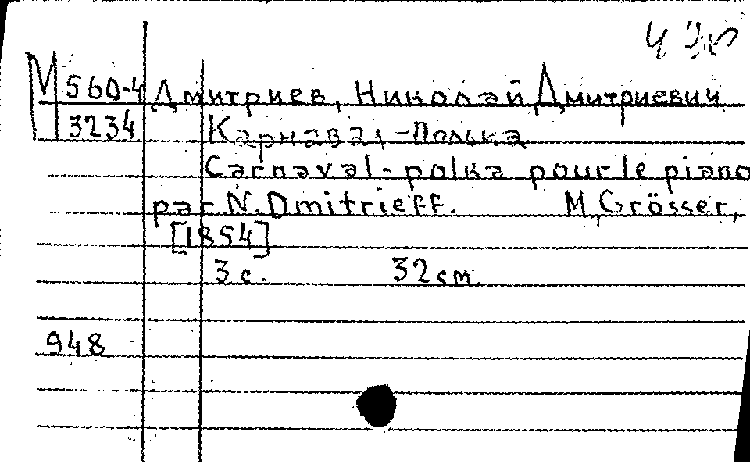 М 560-4 Дмитриев, Николай Дмитриевич
3234 Карнавал-полька
Carnaval-polka pour le piano
par N. Dmitrieff. М, Grösser,
[1854]
3 с. 32 см.
948